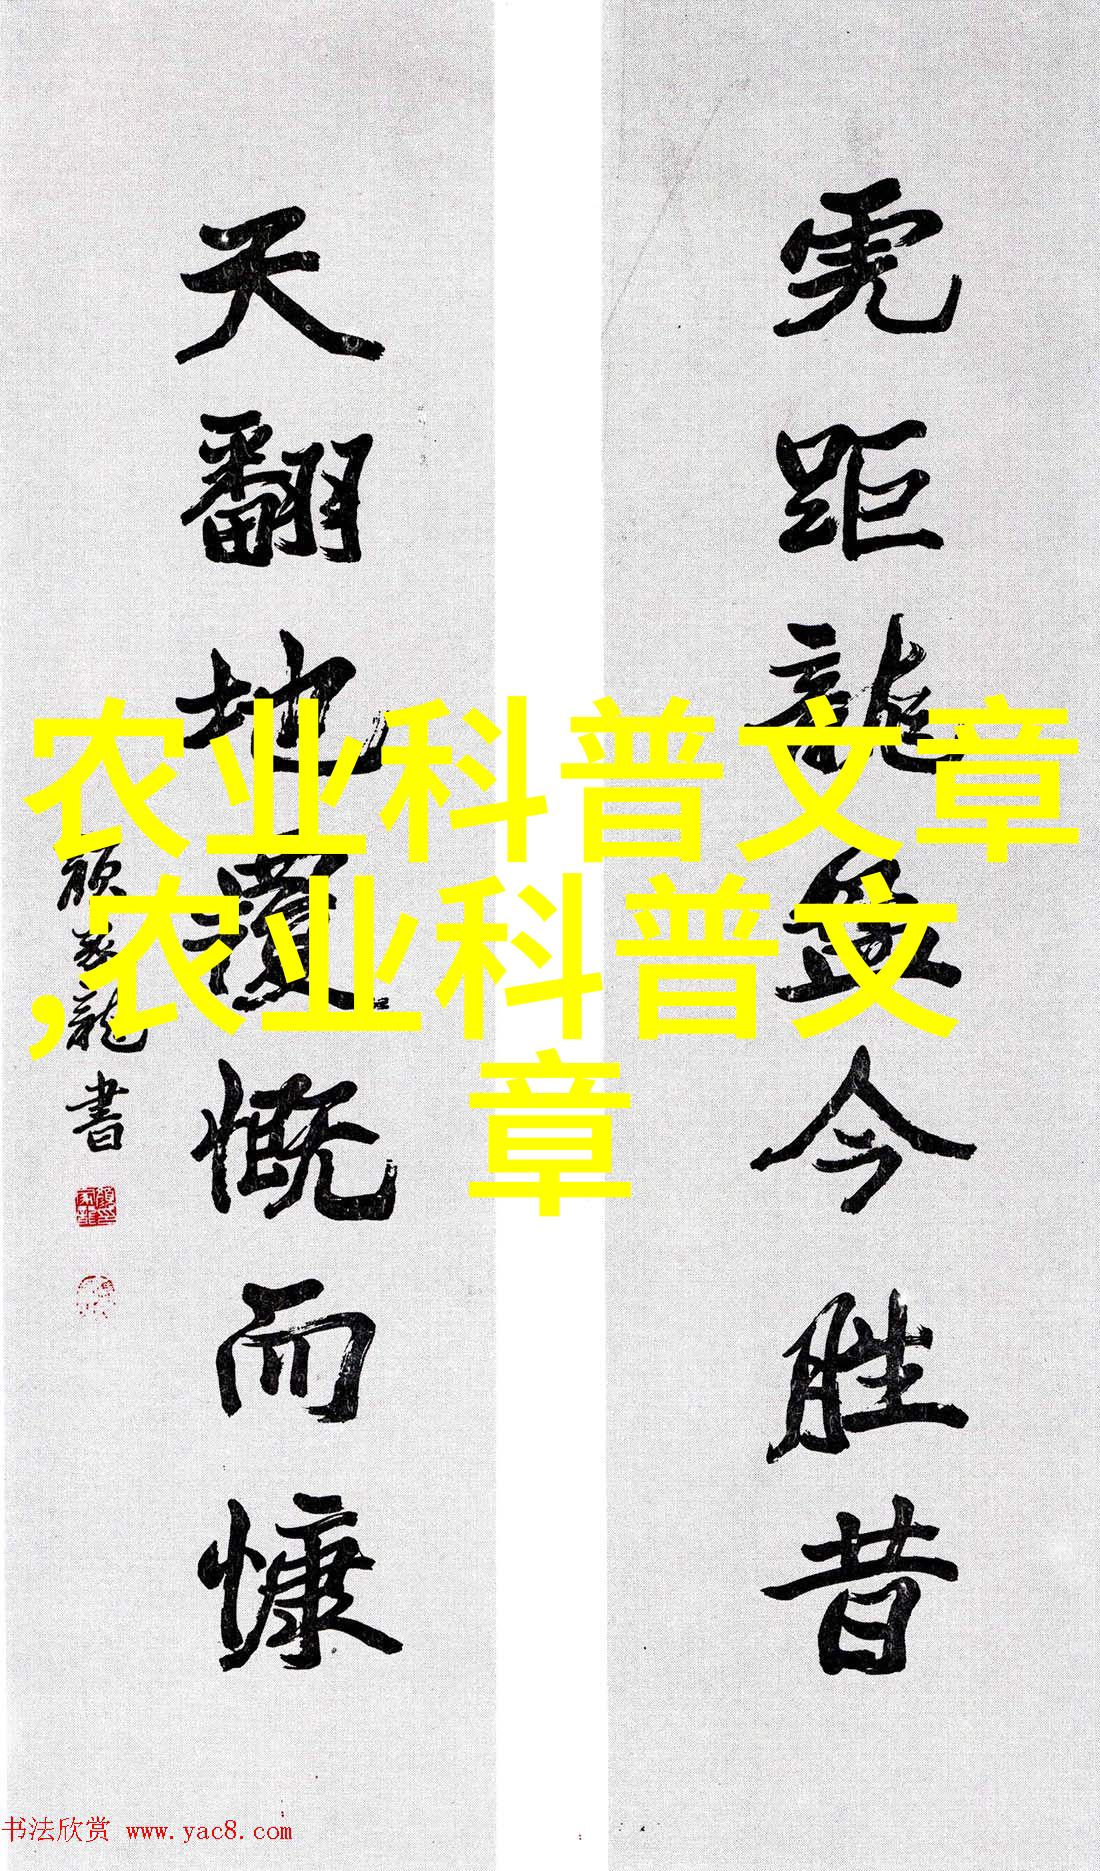 虎距龍盤今胜昔
天翻地覆慨而慷
顾家龍書
农业科普文章
,农业科普文
章
书法欣赏 www.yac8.com